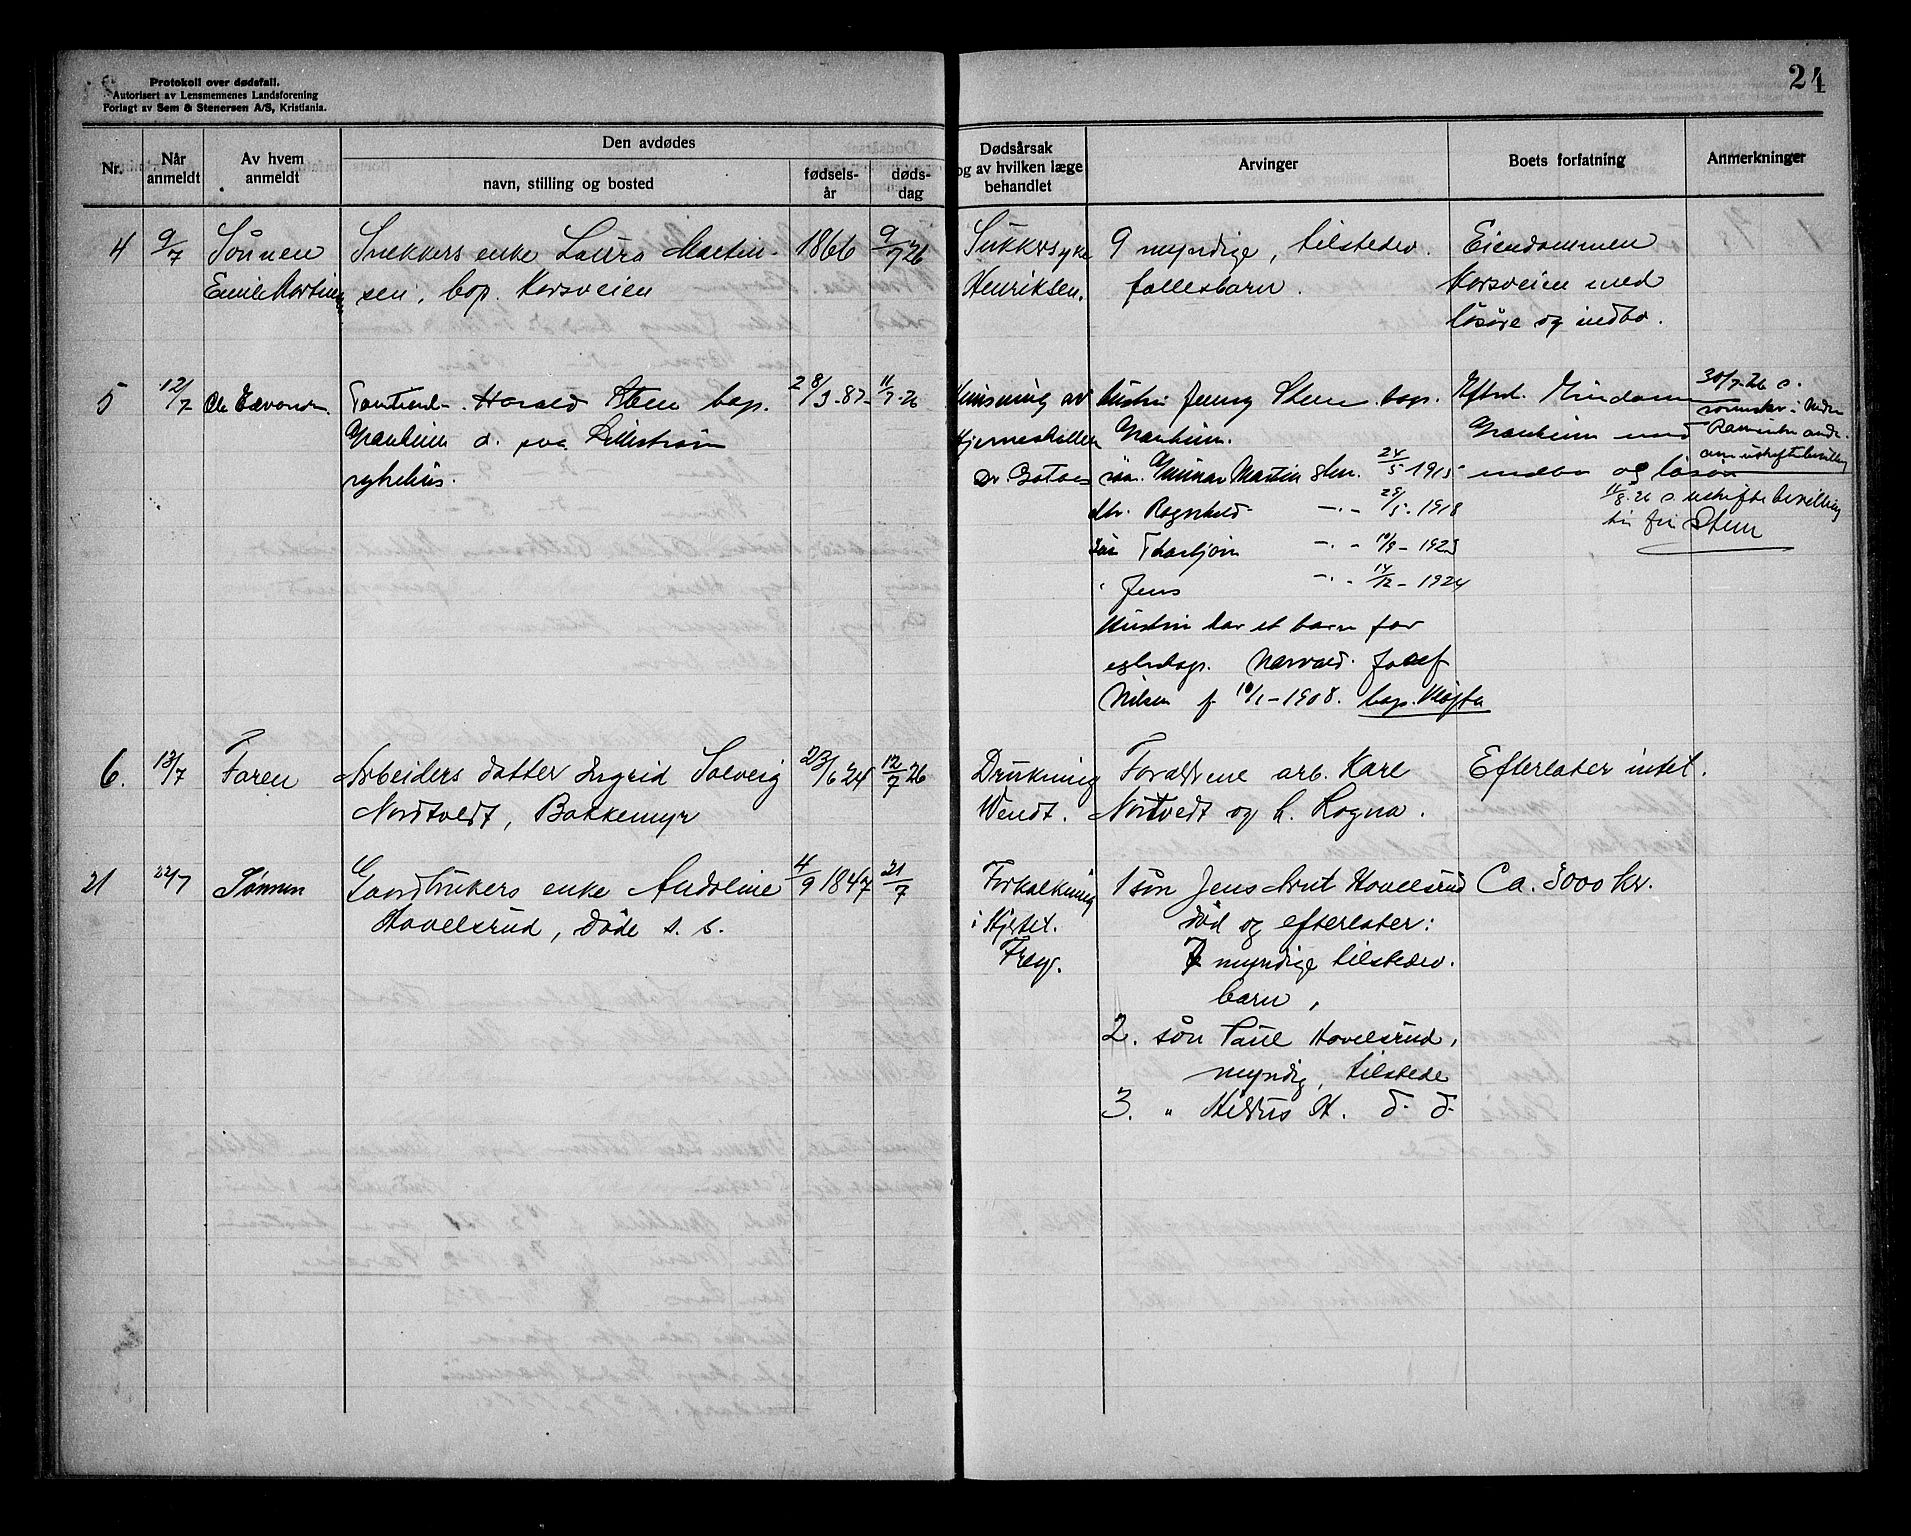 Protokoll over dødsfall.
Autorisert av Lensmennenes Landsforening
Forlagt av Sem & Stenersen A/S, Kristiania.
24
Nr.
Når anmeldt
Av hvem anmeldt
Den avdødes
navn, stilling og bosted
fødsels-
år
døds-
dag
Dødsårsak
og av hvilken læge
behandlet
Arvinger
Boets forfatning
Anmerkninger
4 9/7 Sønnen Snekkers enke Laura Martin- 1866 9/7 26 Sukkersyke 9 myndige, tilstedev. Eiendommen
Emil Martinsen sen, bop. Korsveien Henriksen. fællesbarn. Korsveien med
løsøre og indbo.
5 12/7 Harald Steen bop. 28/3-87- 11/7-26 av hustru Jenny Steen bop. Efterl. 30/7-26 s.
Granheim d. paa Lillestrøm Hjerneskallen Granheim. Granheim med
sykehus. Dr. søn. Gunnar Martin Steen. 24/5 1915 indbo og løsøre
dtr. Ragnhild -"- 29/5-1918 11/8-26 s. uskiftebevilling
søn Thorbjørn -"- 10/9-1923 til fru Steen
" Jens -"- 14/12-1924
Hustru har et barn før
egteskap. Harald Josef
Nilsen f. 10/1-1908. bop. Kløfta
6. 13/7 Faren Arbeiders datter Ingrid Solveig 23/6 24 12/7 26 Drukning Forældrene arb. Karl Efterlater intet.
Nordtvedt, Bakkemyr Wendt. Nortvedt og h. Ragna.
21 22/7 Sønnen Gaardbrukers enke Andoline 4/9 1847 21/7 Forkalkning 1 søn Jens Arnt Hovelsrud Ca. 3000 kr.
Hovelsrud, døde s. s. i Hjertet. død og efterlater:
Frey. 7 myndige tilstedev.
barn,
2. søn Paul Hovelsrud,
myndig, tilstede
3. " H. d. d.